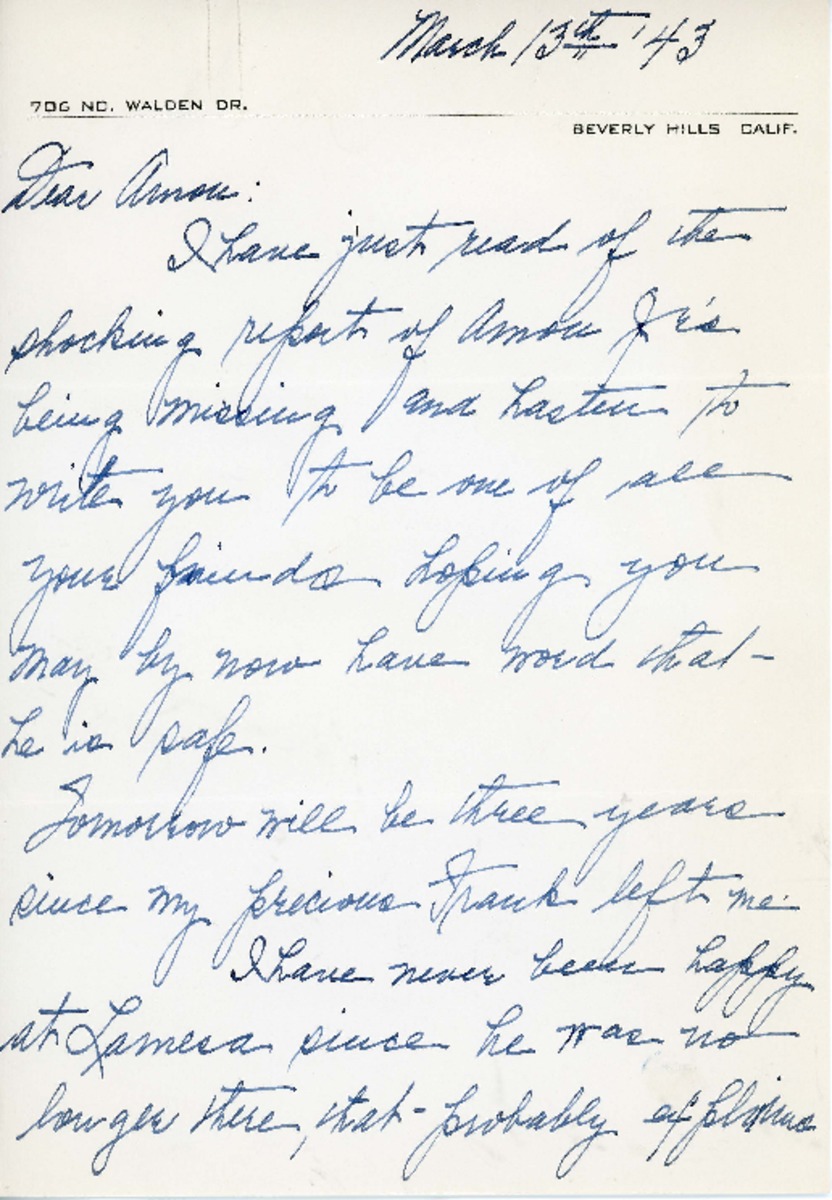 March 13th '43
706 NO. WALDEN DR.
BEVERLY HILLS CALIF.
Dear Amon:
I have just read of the
shocking report of Amon Jr's
being missing and hasten to
write you to be one of all
your friends hoping you
may by now have word that-
he is safe.
Tomorrow will be three years
since my precious Frank left me.
I have never been happy
at Lamesa since he was no
longer there, that- probably explains